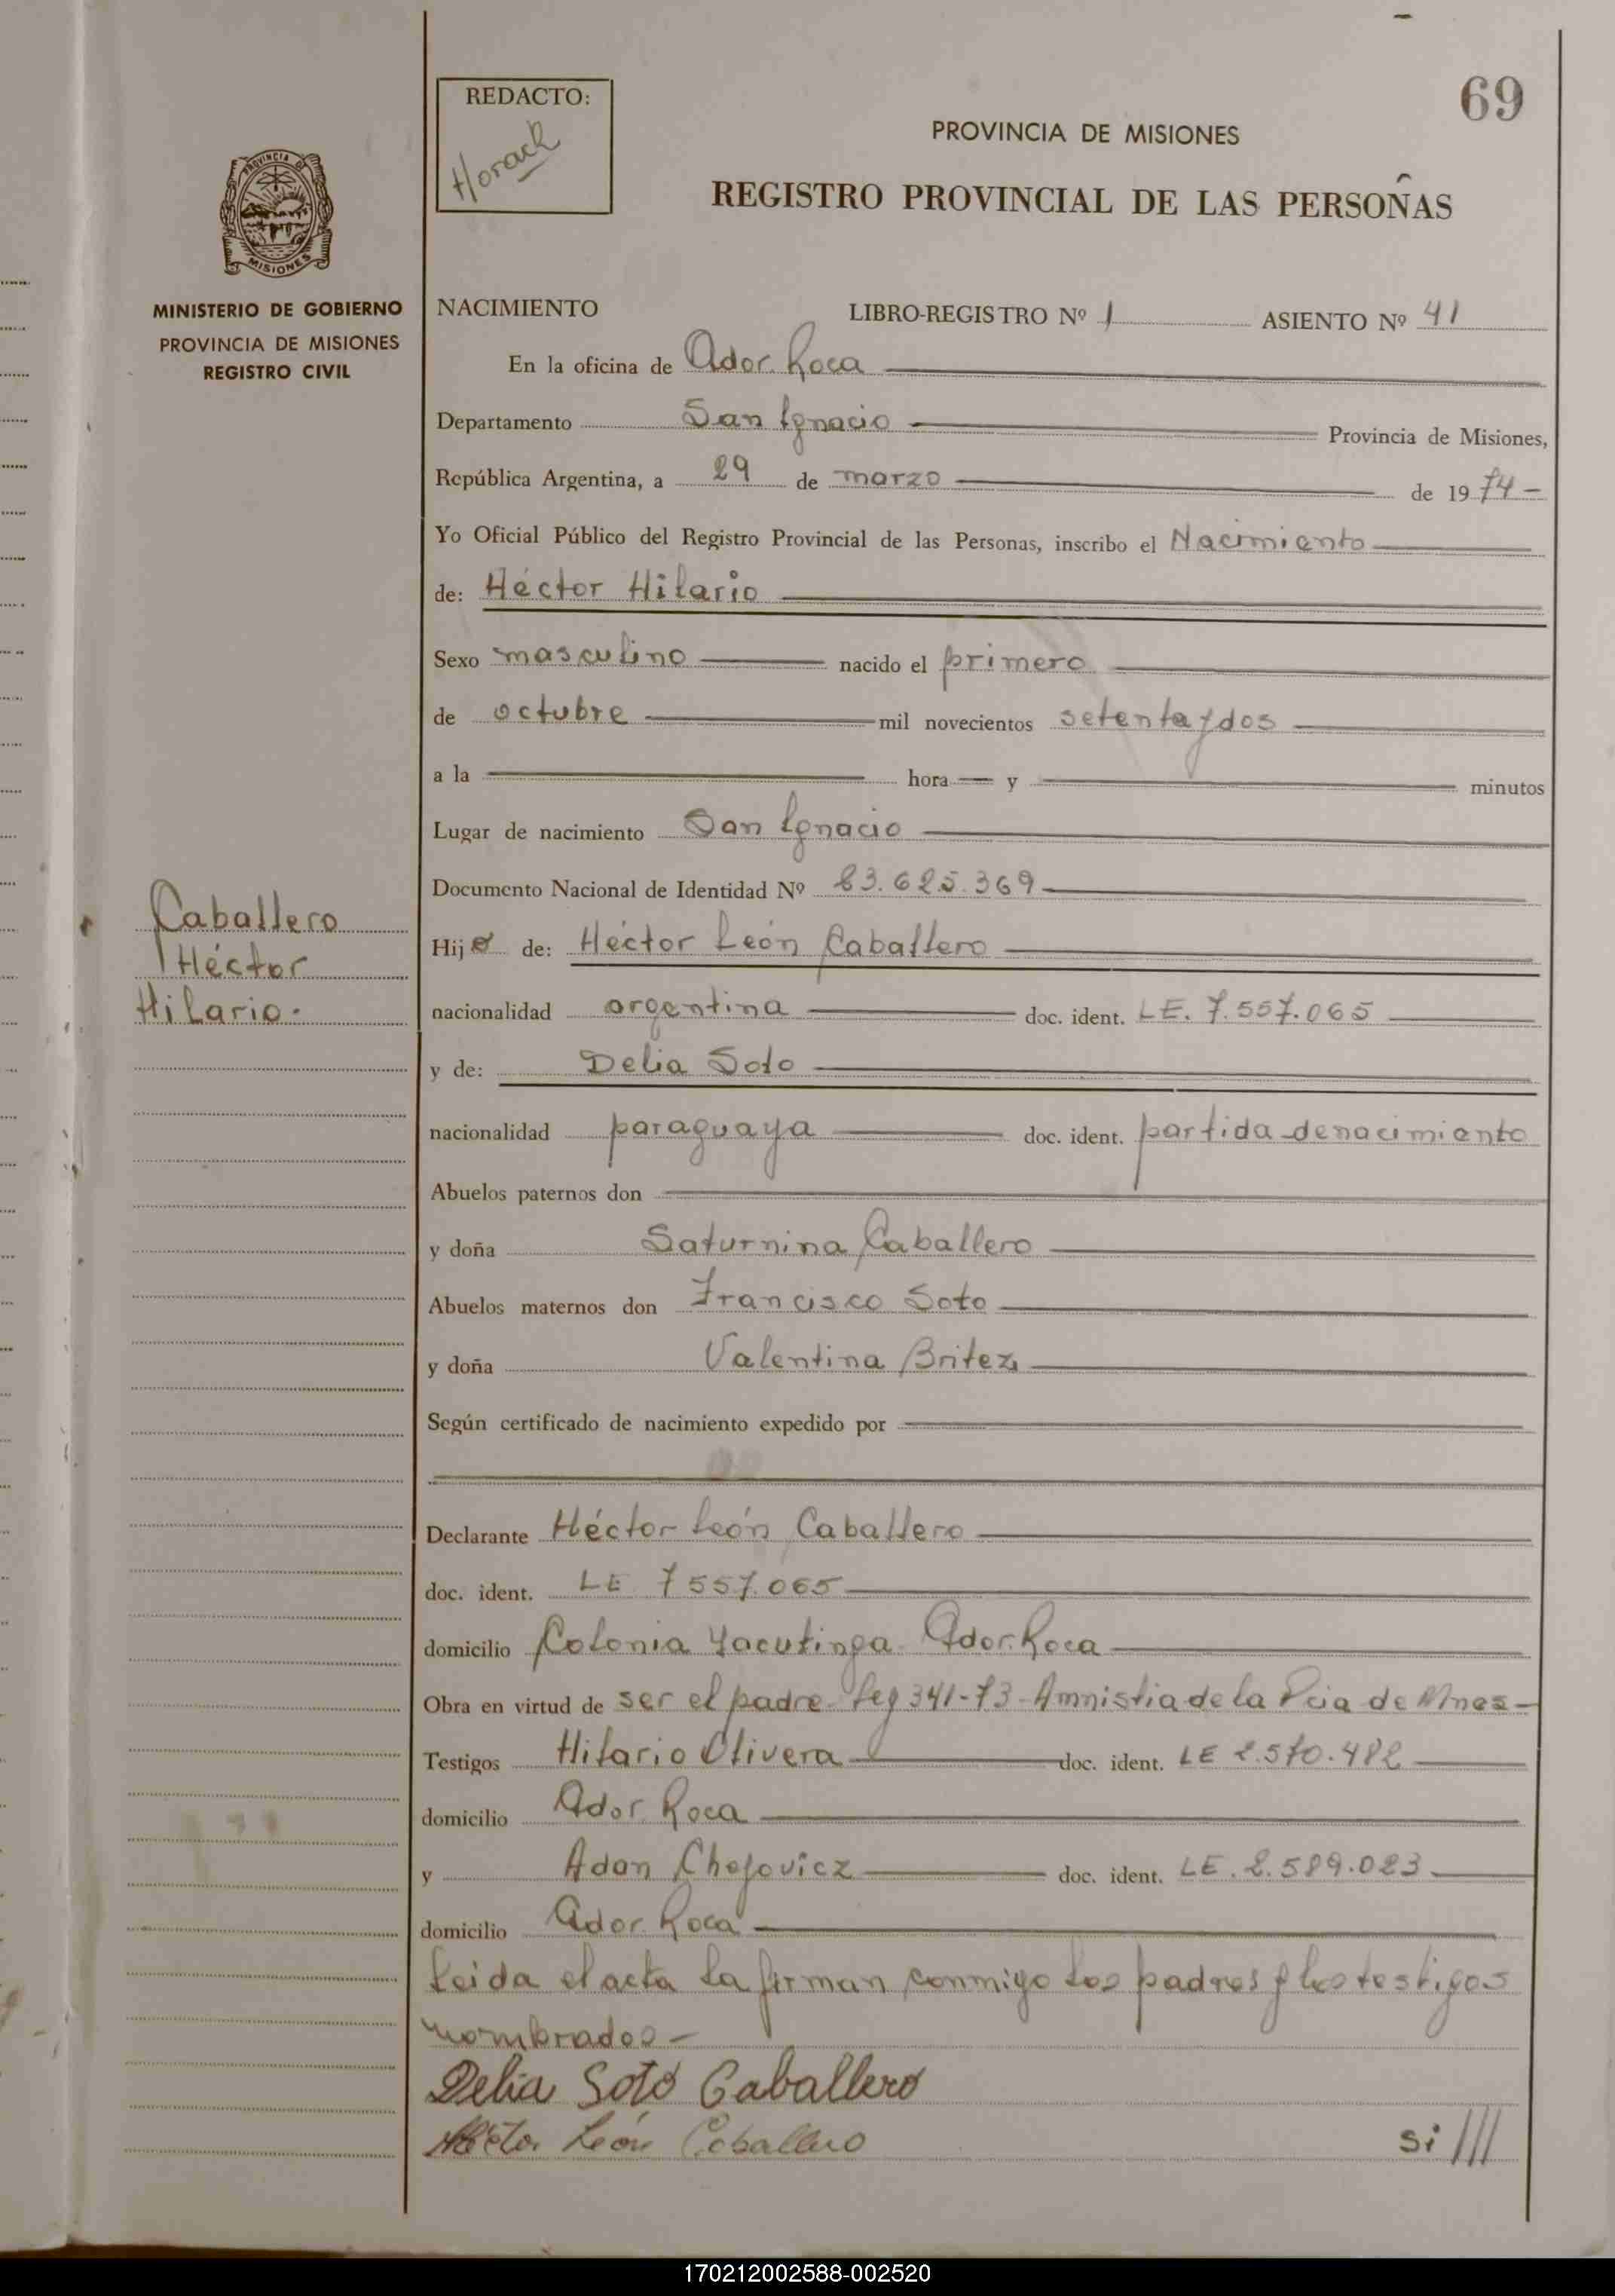 69
REDACTO:
Horack
PROVINCIA DE MISIONES
REGISTRO PROVINCIAL DE LAS PERSONAS
PROVINCIA DE
MISIONES
MINISTERIO DE GOBIERNO
PROVINCIA DE MISIONES
REGISTRO CIVIL
NACIMIENTO LIBRO-REGISTRO Nº 1 ASIENTO Nº 41
En la oficina de Ador. Roca
Departamento San Ignacio Provincia de Misiones,
República Argentina, a 29 de marzo de 1974-
Yo Oficial Público del Registro Provincial de las Personas, inscribo el Nacimiento
de: Héctor Hilario
Sexo masculino nacido el primero
de octubre mil novecientos setenta y dos
a la hora y minutos
Lugar de nacimiento San Ignacio
Documento Nacional de Identidad Nº 23.625.369
Caballero
Héctor
Hilario.
Hijo de: Héctor León Caballero
nacionalidad argentina doc. ident. LE. 7.557.065
y de: Delia Soto
nacionalidad paraguaya doc. ident. partida de nacimiento
Abuelos paternos don
y doña Saturnina Caballero
Abuelos maternos don Francisco Soto
y doña Valentina Britez
Según certificado de nacimiento expedido por
Declarante Héctor León Caballero
doc. ident. LE 7557.065
domicilio Colonia Yacutinga Ador. Roca
Obra en virtud de ser el padre - Ley 341-73 - Amnistia de la Pcia de Mnes-
Testigos Hilario Olivera doc. ident. LE 2.570.482
domicilio Ador. Roca
y Adan Chojovicz doc. ident. LE. 2.589.023
domicilio Ador. Roca
Leida el acta la firman conmigo los padres y los testigos
nombrados-
Delia Soto Caballero
Héctor León Caballero
Si ///
170212002588-002520